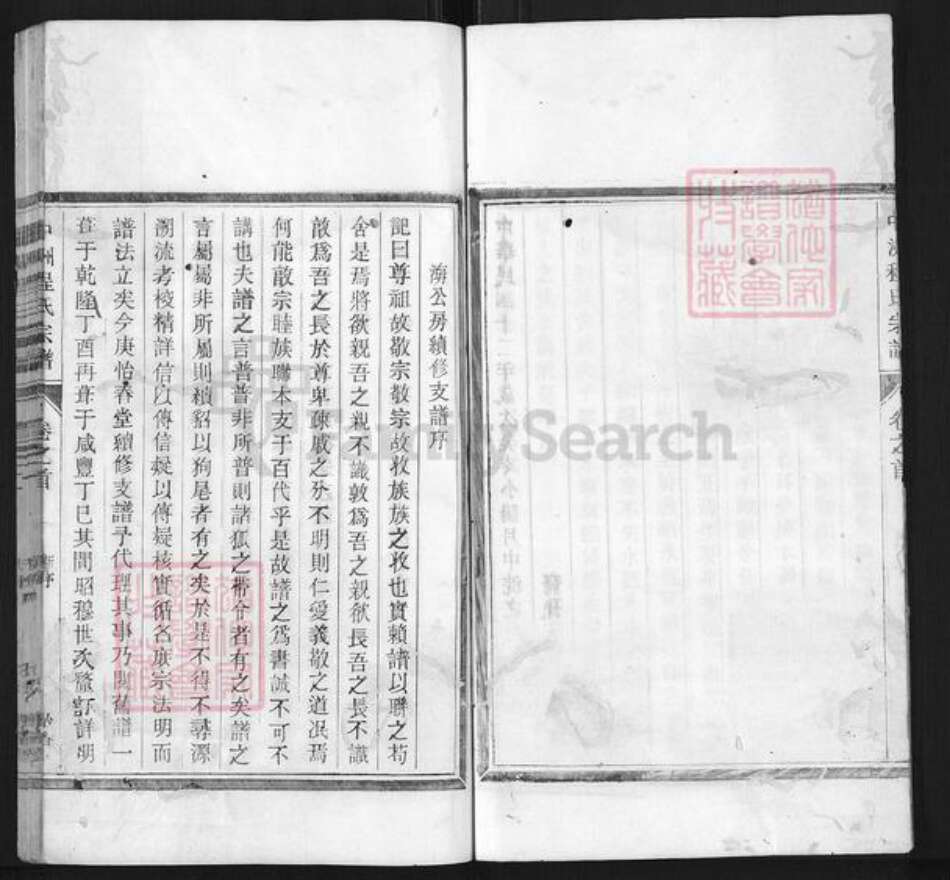 中洲程氏宗譜
卷之首
公房續修支譜序
記曰尊祖故敬宗敬宗故收族族之收也實賴譜以聯之苟
舍是焉將欲親吾之親不識孰爲吾之親欲長吾之長不識
敵爲吾之長於尊卑疎戚之分不明則仁愛義敬之道泯焉
何能敵宗睦族聯本支于百代乎是故譜之爲書誠不可不
講也夫譜之言普普非所普則諸狐之帶令者有之矣譜之
言屬屬非所屬則續貂以狗尾者有之矣於是不得不尋源
溯流考核精詳信以傳信疑以傳疑核實循名族宗法明而
譜法立矣今庚怡春堂續修支譜予代理其事乃閱舊譜一
葺于乾隆丁酉再葺于咸豐丁巳其間昭穆世次釐訂詳明
中洲程氏宗譜
卷之首
FamilySearch